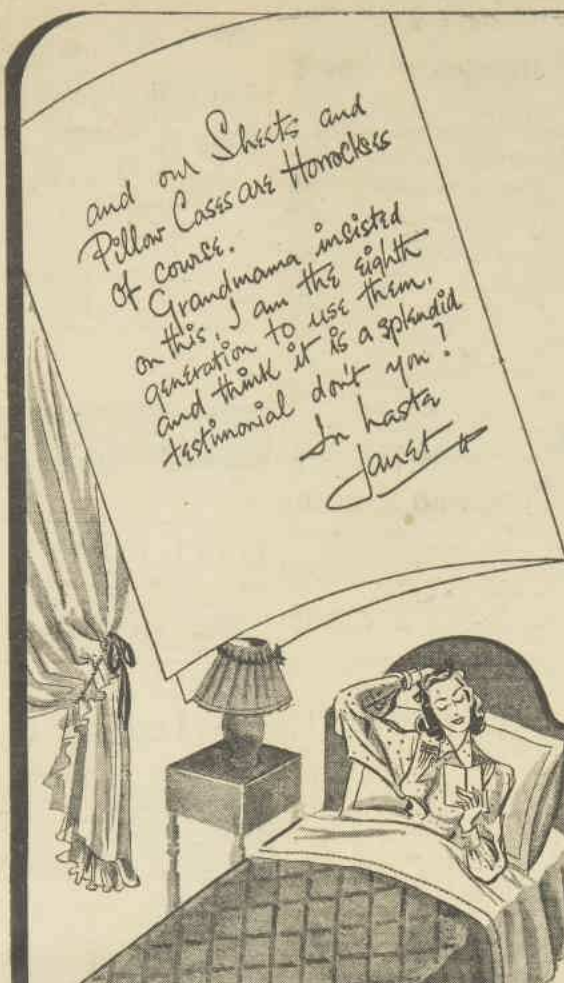 and our Sheets and
Pillow Cases are Horrockses
of course.
Grandmama insisted
on this, I am the eighth
generation to use them,
and think it is a splendid
testimonial don't you?
In haste
Janet